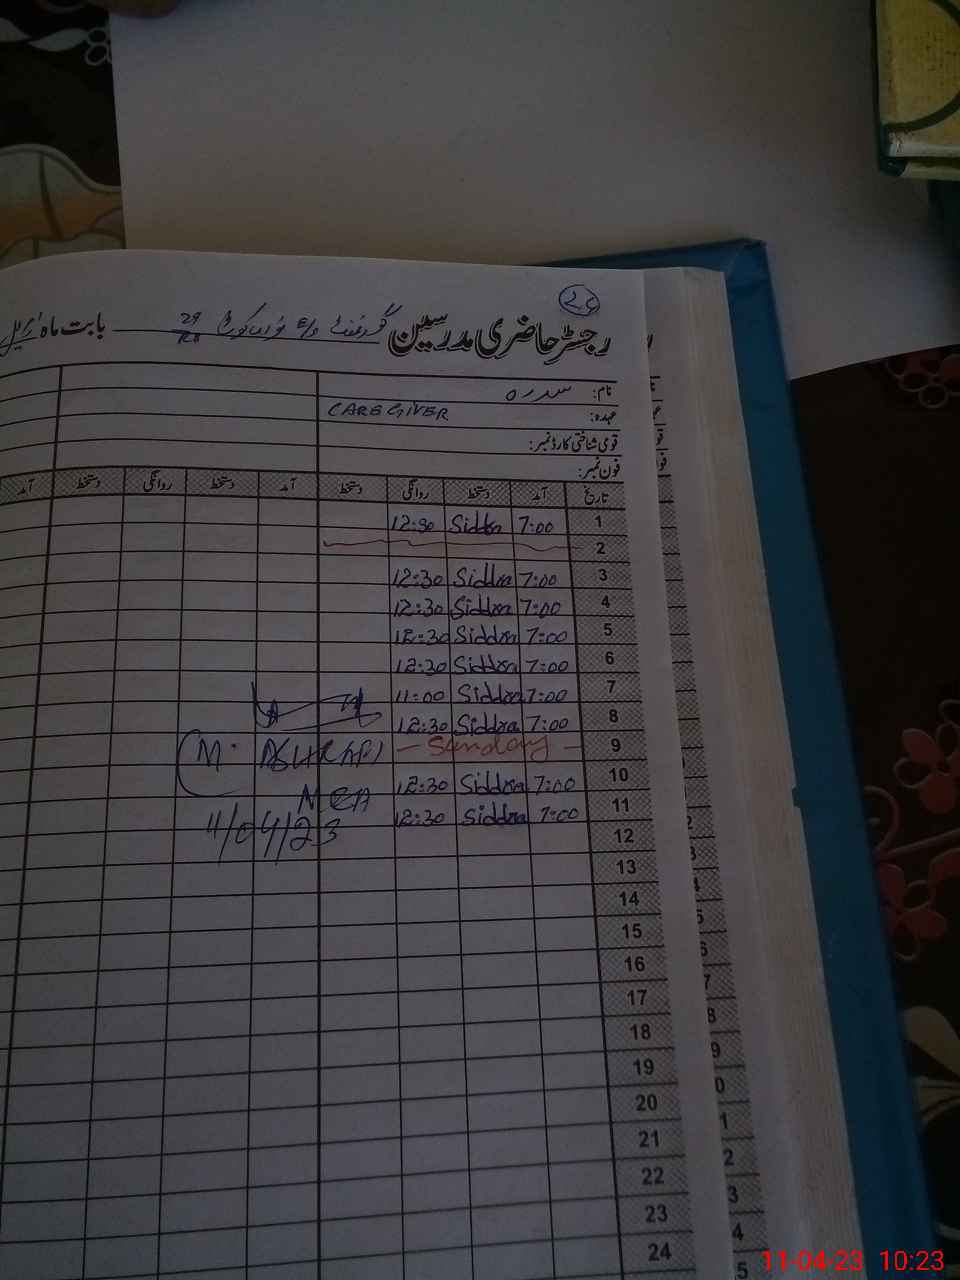 25
رجسٹر حاضری مدرسین گورنمنٹ بابت ماہ اپریل
نام: سدره
عہدہ: CAREGIVER
قومی شناختی کارڈ نمبر:
فون نمبر:
تاریخ آمد دستخط روانگی دستخط آمد دستخط روانگی دستخط آمد
1 7:00 Siddra 12:30
2
3 7:00 Siddra 12:30
4 7:00 Siddra 12:30
5 7:00 Siddra 12:30
6 7:00 Siddra 12:30
7 7:00 Siddra 11:00
8 7:00 Siddra 12:30
9 — Sunday —
10 7:00 Siddra 12:30
11 7:00 Siddra 12:30
(M. ASHRAF)
MEA
11/04/23
12
13
14
15
16
17
18
19
20
21
22
23
24
11-04-23 10:23